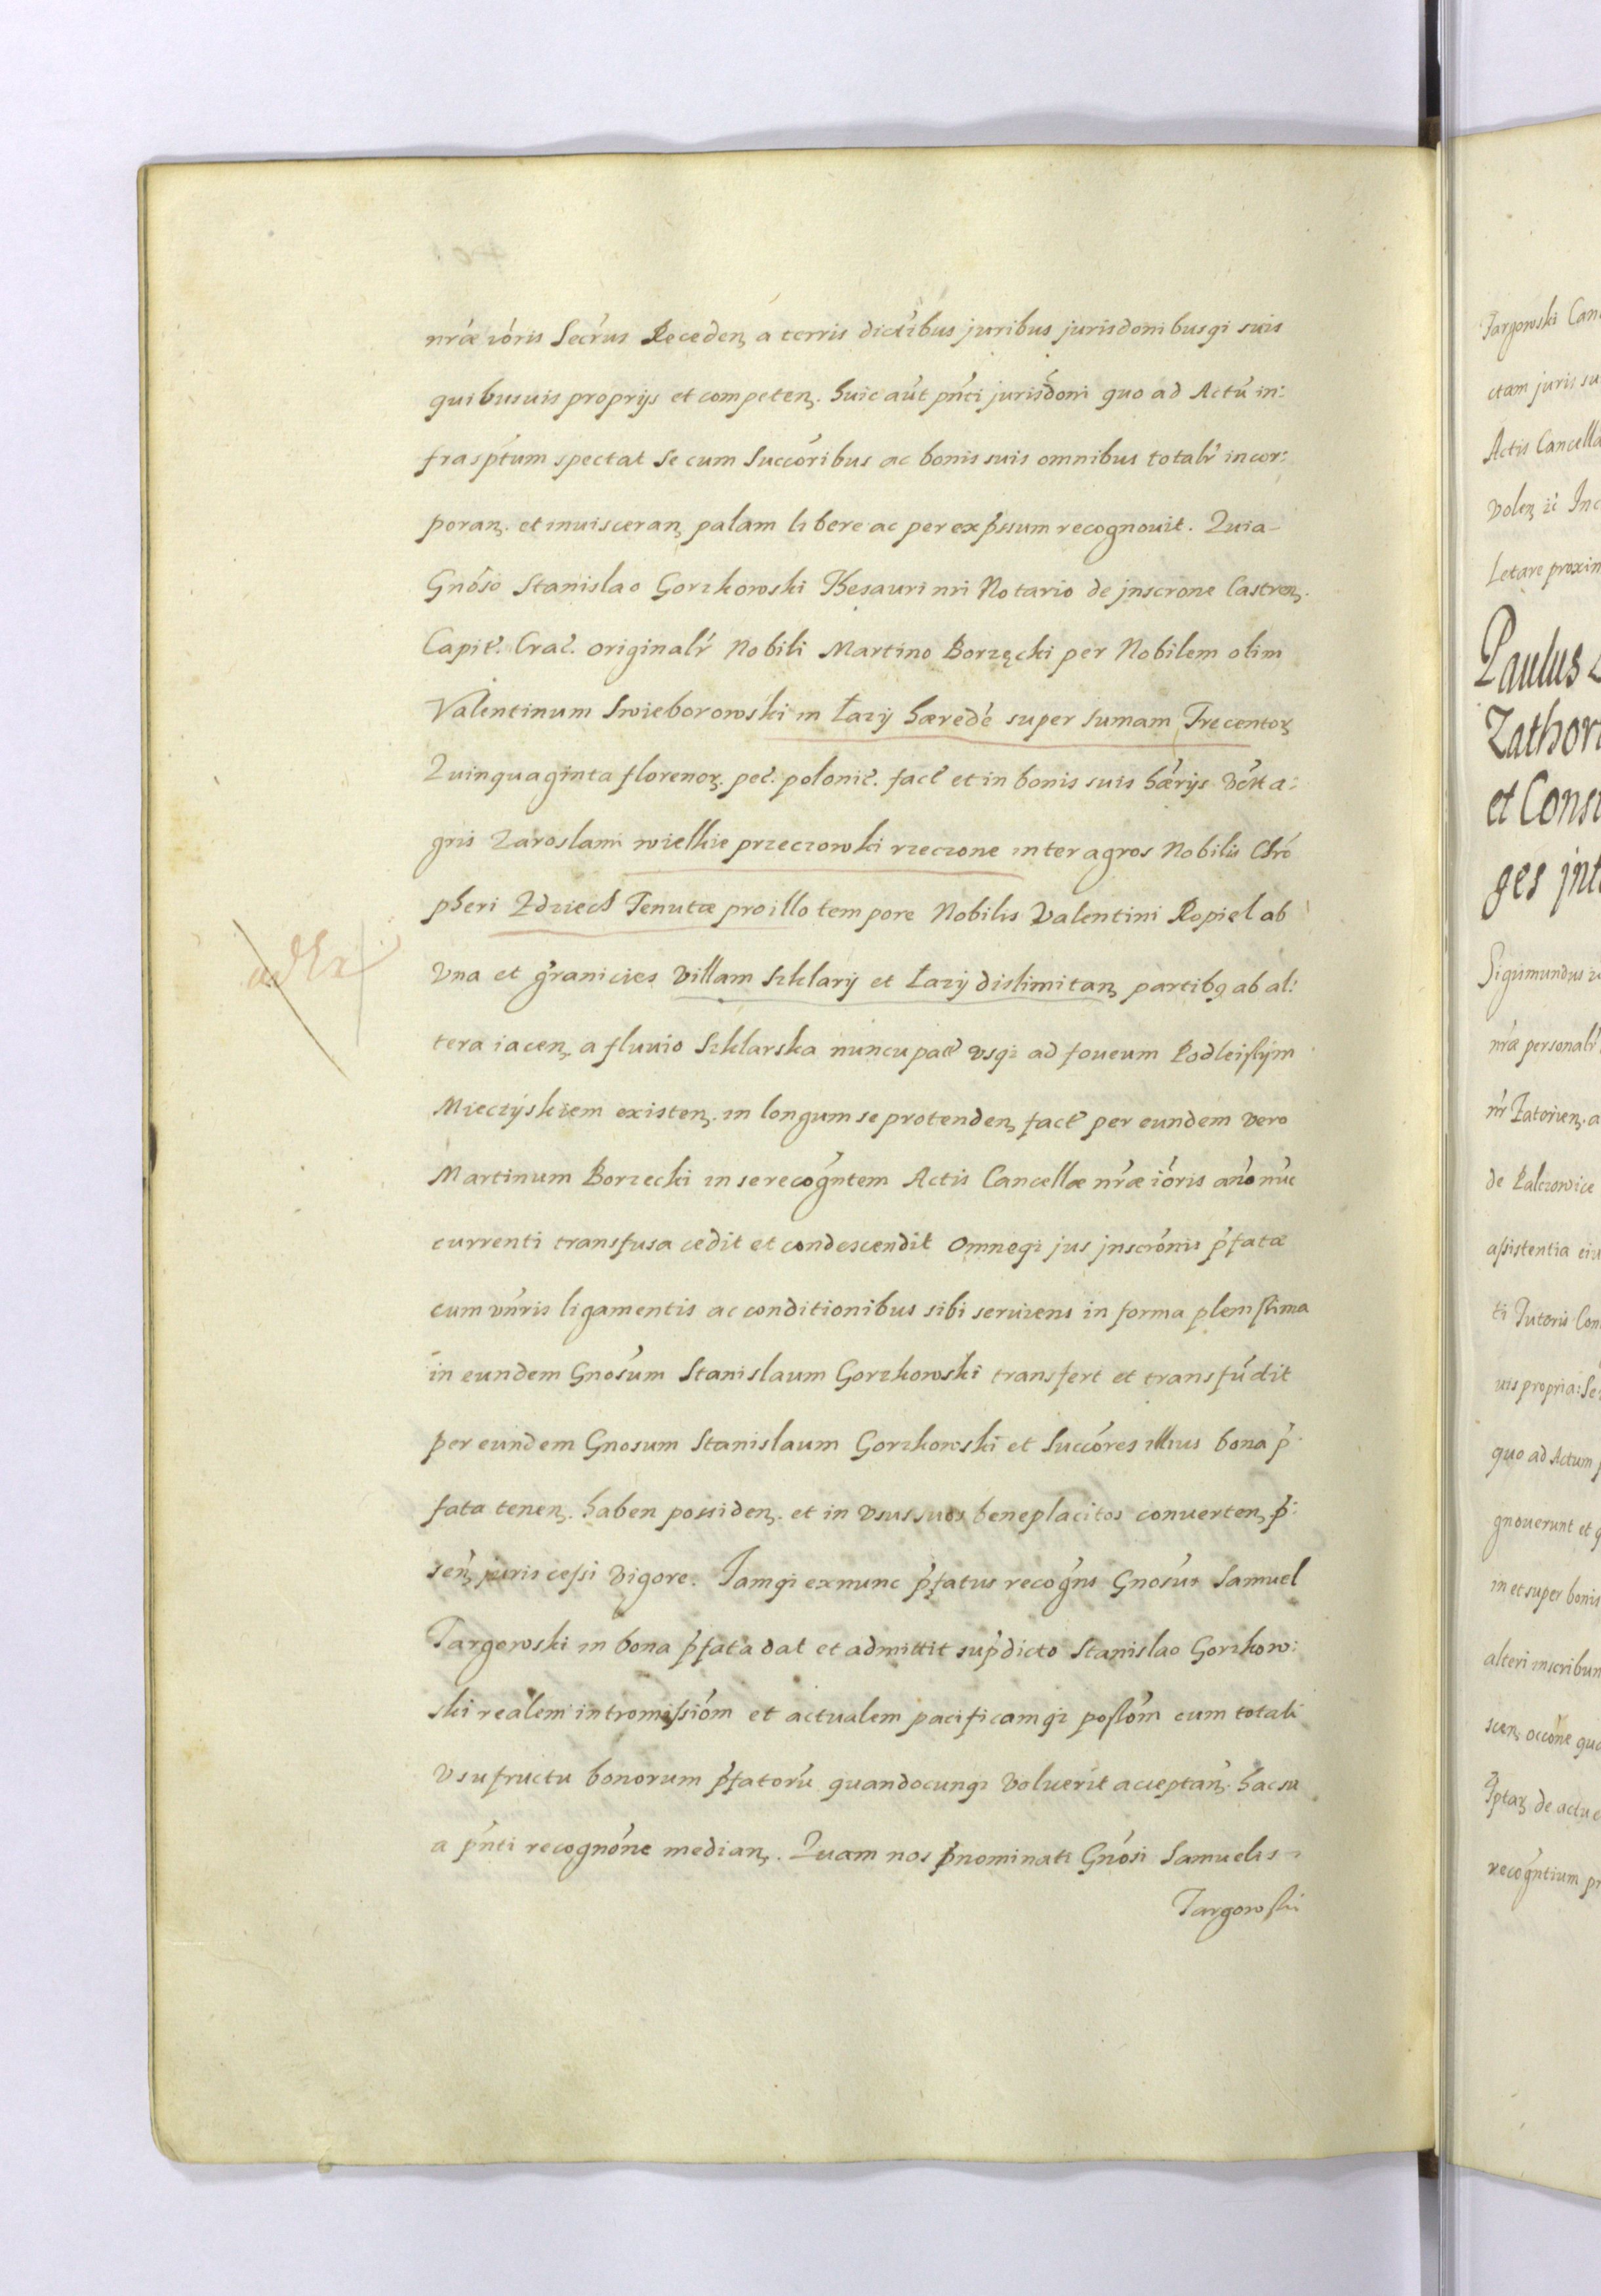 nr̃æ ioris Secr̃us Receden. a terris dictr̃ibus juribus jurisdonibusqȝ suis
quibusuis proprijs et competen. Huic aũt pñti jurisdõni quo ad Actũ in:
frasptum spectat Se cum Succõribus ac bonis suis omnibus totalr̃ incor:
poran. et inuisceran. palam libere ac per exp̃ssum recognouit. Quia
Gnõso Stanislao Gorzkowski Thesauri nri Notario de jnscrone Castren.
Capit̃. Crac̃. originalr̃ Nobili Martino Borzęcki per Nobilem olim
Valentinum Swieborowski in Łazy hærede super Sumam Trecentorȝ
Quinquaginta florenorȝ. pec̃. polonic̃. fact̃ et in bonis suis hærijs vcȝt a:
gris Zaroslami wielkie przeczowki rzeczone inter agros Nobilis Chrõ
pheri Zdziech Tenutæ pro illo tempore Nobilis Valentini Ropiel ab
vna et granicies villam Szklary et Łazy dislimitan. partibꝰ ab al:
tera iacen. a fluuio Szklarska nuncupat̃ vsqȝ ad foueum Podleissym
Mieczyskiem existen. in longum se protenden. fact̃ per eundem vero
Martinum Borzecki in se recogñtem Actis Cancellæ nr̃æ ioris año nũc
currenti transfusa cedit et condescendit omneqȝ jus jnscrõnis p̃fatæ
cum vñris ligamentis ac conditionibus sibi seruiens in forma plenissima
in eundem Gnosum Stanislaum Gorzkowski transfert et transfũdit
per eundem Gnosum Stanislaum Gorzkowski et Succõres illius bona p̃
fata tenen. haben possiden. et in vsus suos beneplacitos conuerten. p̃:
sen. juris cessi vigore. Iamqȝ exnunc p̃fatus recogñs Gnosus Samuel
Targowski in bona p̃fata dat et admittit sup̃dicto Stanislao Gorzkow:
ski realem intromissiõm et actualem pacificamqȝ possõm cum totali
vsufructu bonorum p̃fatorũ quandocunqȝ voluerit acceptan. hac su
a pñti recognõne median. Quam nos p̃nominati Gnõsi Samuelis
Targowski
ad Ex
Targowski Can
ctam juris su
Actis Cancella
volen. ic̃ Inc
Letare proxim
Paulus
Zathori
et Consi
ges jnt
Sigismundus
nr̃æ personalr̃
nr̃ Zatorien. a
de Palczowice
assistentia ei
ti Tutoris Con
uis propria: Se
quo ad Actum
gnouerunt et q
in et super bonis
alteri inscribun
scen. occõne qua
ptaȝ de actu
recogñtium pr